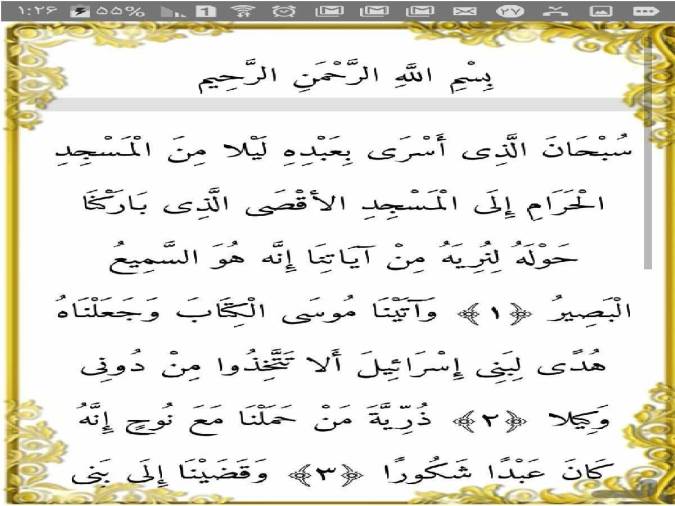 ۱:۲۶ ۵۵% 1 ۲۷
بِسْمِ اللَّهِ الرَّحْمَنِ الرَّحِيمِ
سُبْحَانَ الَّذِى أَسْرَى بِعَبْدِهِ لَيْلا مِنَ الْمَسْجِدِ
الْحَرَامِ إِلَى الْمَسْجِدِ الأقْصَى الَّذِى بَارَكْنَا
حَوْلَهُ لِنُرِيَهُ مِنْ آيَاتِنَا إِنَّه هُوَ السَّمِيعُ
الْبَصِيرُ ﴿۱﴾ وَآتَيْنَا مُوسَى الْكِتَابَ وَجَعَلْنَاهُ
هُدًى لِبَنِى إِسْرَائِيلَ أَلا تَتَّخِذُوا مِنْ دُونِى
وَكِيلا ﴿۲﴾ ذُرِّيَّةَ مَنْ حَمَلْنَا مَعَ نُوحٍ إِنَّهُ
كَانَ عَبْدًا شَكُورًا ﴿۳﴾ وَقَضَيْنَا إِلَى بَنِى